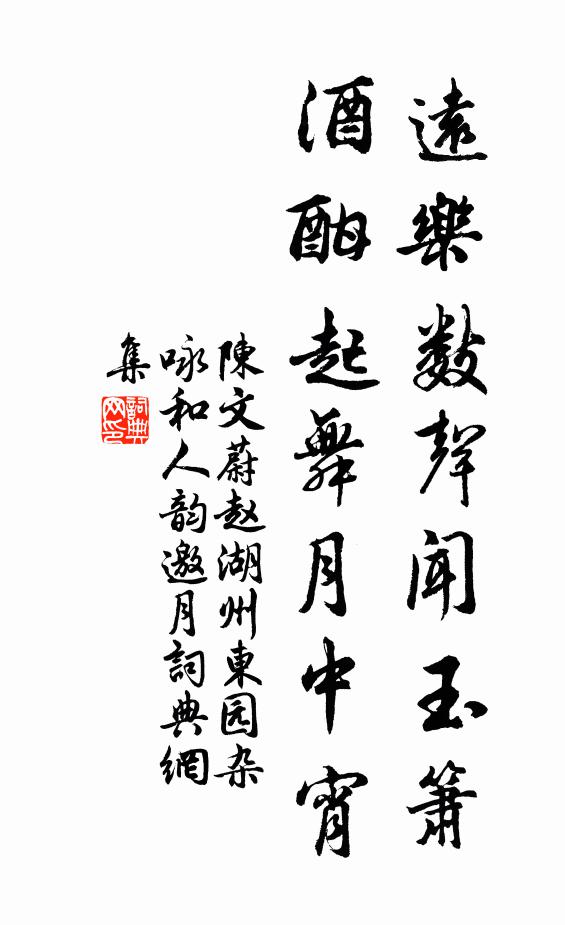 遠樂數聲聞玉簫
酒酣起舞月中宵
陳文蔚赵湖州東园杂
咏和人韵邀月詞典網
集
詞典网印